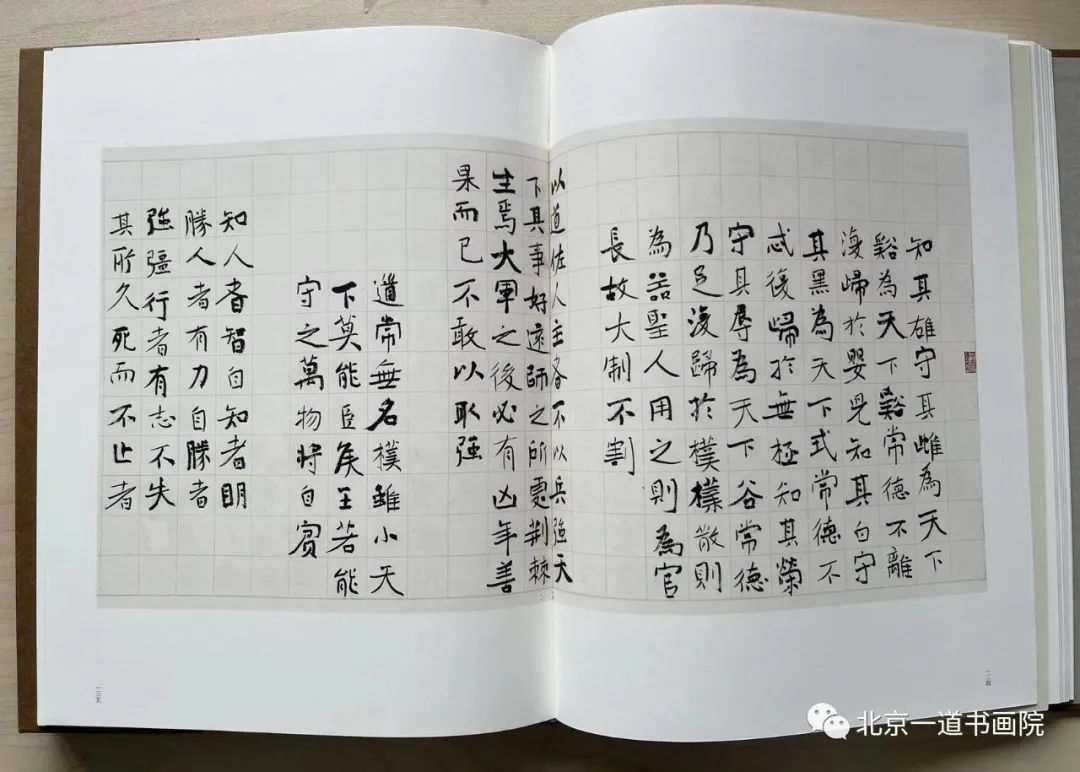 知其雄守其雌為天下
谿為天下谿常德不離
復歸於嬰兒知其白守
其黑為天下式常德不
忒復歸於無極知其榮
守其辱為天下谷常德
乃足復歸於樸樸散則
為器聖人用之則為官
長故大制不割
以道佐人主者不以兵強天
下其事好還師之所處荆棘
生焉大軍之後必有凶年善
果而已不敢以取強
道常無名樸雖小天
下莫能臣侯王若能
守之萬物將自賓
知人者智自知者明
勝人者有力自勝者
強彊行者有志不失
其所久死而不亡者
一三四
一三五
北京一道书画院